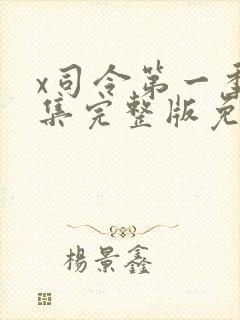 x司令第一季
集完整版免
楊景鑫